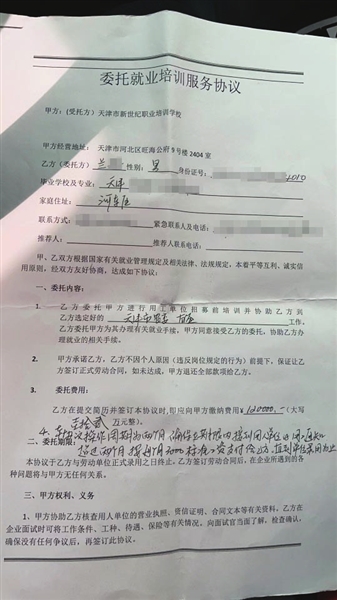 委托就业培训服务协议
甲方：(受托方) 天津市新世纪职业培训学校
甲方经营地址： 天津市河北区旺海公府9号楼2404室
乙方（委托方） 兰 性别：男 身份证号：
毕业学校及专业： 天津
家庭住址： 河东区
联系方式： 紧急联系人及电话：
推荐人： 推荐人联系电话：
甲、乙双方根据国家有关就业管理规定及相关法律、法规规定，本着平等互利、诚实信
用原则，经双方友好协商，达成如下协议：
一、委托内容：
1. 乙方委托甲方进行用工单位招募前培训并协助乙方到
乙方选定好的 天津市 工作。
乙方委托甲方为其办理有关就业手续，甲方同意接受乙方的委托，协助乙方办
理就业的相关手续。
2. 甲方承诺乙方，乙方不因个人原因（违反岗位规定的行为）前提下，保证让乙
方签正式劳动合同，如未达成，甲方退还全部款项给乙方。
3. 委托费用：
乙方在提交简历并签订本协议时，即应向甲方缴纳费用¥120000.-（大写
壹拾贰 万元整）。
二、委托期限：
本协议于乙方与劳动单位正式录用之日终止。乙方签订劳动合同后，在企业所遇到的各
种问题将与甲方无任何关系。
三、甲方权利、义务
1、甲方协助乙方核查用人单位的营业执照、资信证明、合同文本等有关资料，乙方在
企业面试时可将工作条件、工种、待遇、保险等有关情况，向面试官当面了解，检查确认，
确保没有任何争议后，再签订此协议。